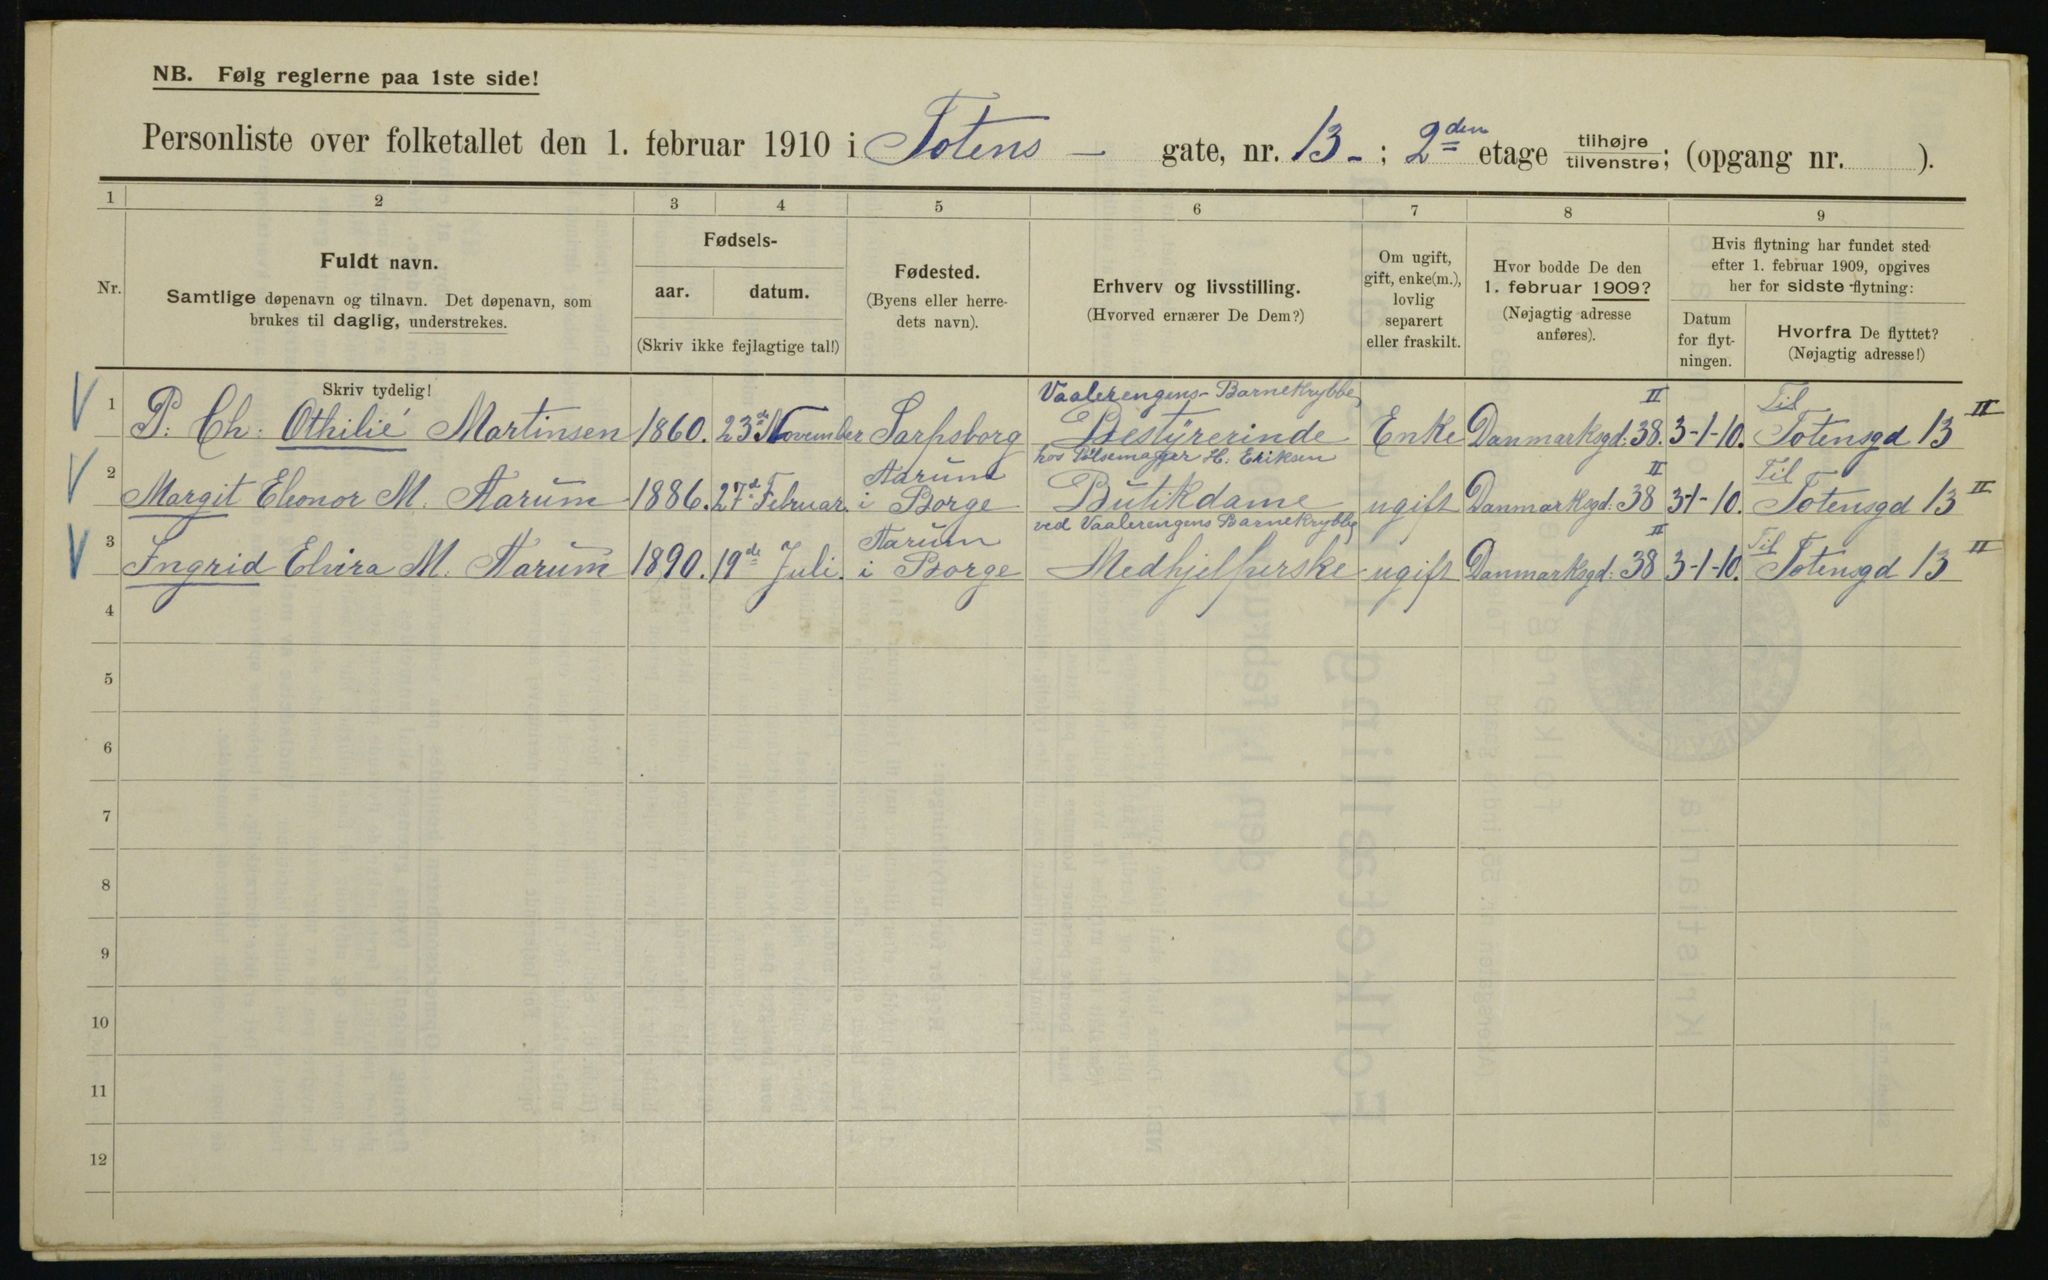 NB. Følg reglerne paa 1ste side!
Personliste over folketallet den 1. februar 1910 i Totens — gate, nr. 13 - ; 2den etage tilhøjre tilvenstre; (opgang nr. ).
1 2 3 4 5 6 7 8 9
Nr.
Fuldt navn.
Samtlige døpenavn og tilnavn. Det døpenavn, som
brukes til daglig, understrekes.
Skriv tydelig!
Fødsels-
aar. datum.
(Skriv ikke fejlagtige tal!)
Fødested.
(Byens eller herre-
dets navn).
Erhverv og livsstilling.
(Hvorved ernærer De Dem?)
Om ugift,
gift, enke(m.),
lovlig
separert
eller fraskilt.
Hvor bodde De den
1. februar 1909?
(Nøjagtig adresse
anføres).
Hvis flytning har fundet sted
efter 1. februar 1909, opgives
her for sidste flytning:
Datum
for flyt-
ningen.
Hvorfra De flyttet?
(Nøjagtig adresse!)
Vaalerengens- Barnekrybbe II Til II
1 P. Ch. Othilie Martinsen 1860. 23de November Sarpsborg Bestyrerinde Enke Danmarksgd: 38. 3-1-10. Totensgd 13
Aarum hos Pølsemager H. Eriksen II Til II
2 Margit Eleonor M. Aarum 1886. 27de Februar. i Borge Butikdame ugift Danmarksgd: 38 3-1-10. Totensgd 13
Aarum ved Vaalerengens Barnekrybbe II Til II
3 Ingrid Elvira M. Aarum 1890. 19de Juli. i Borge Medhjelperske ugift Danmarksgd: 38 3-1-10. Totensgd 13
4
5
6
7
8
9
10
11
12